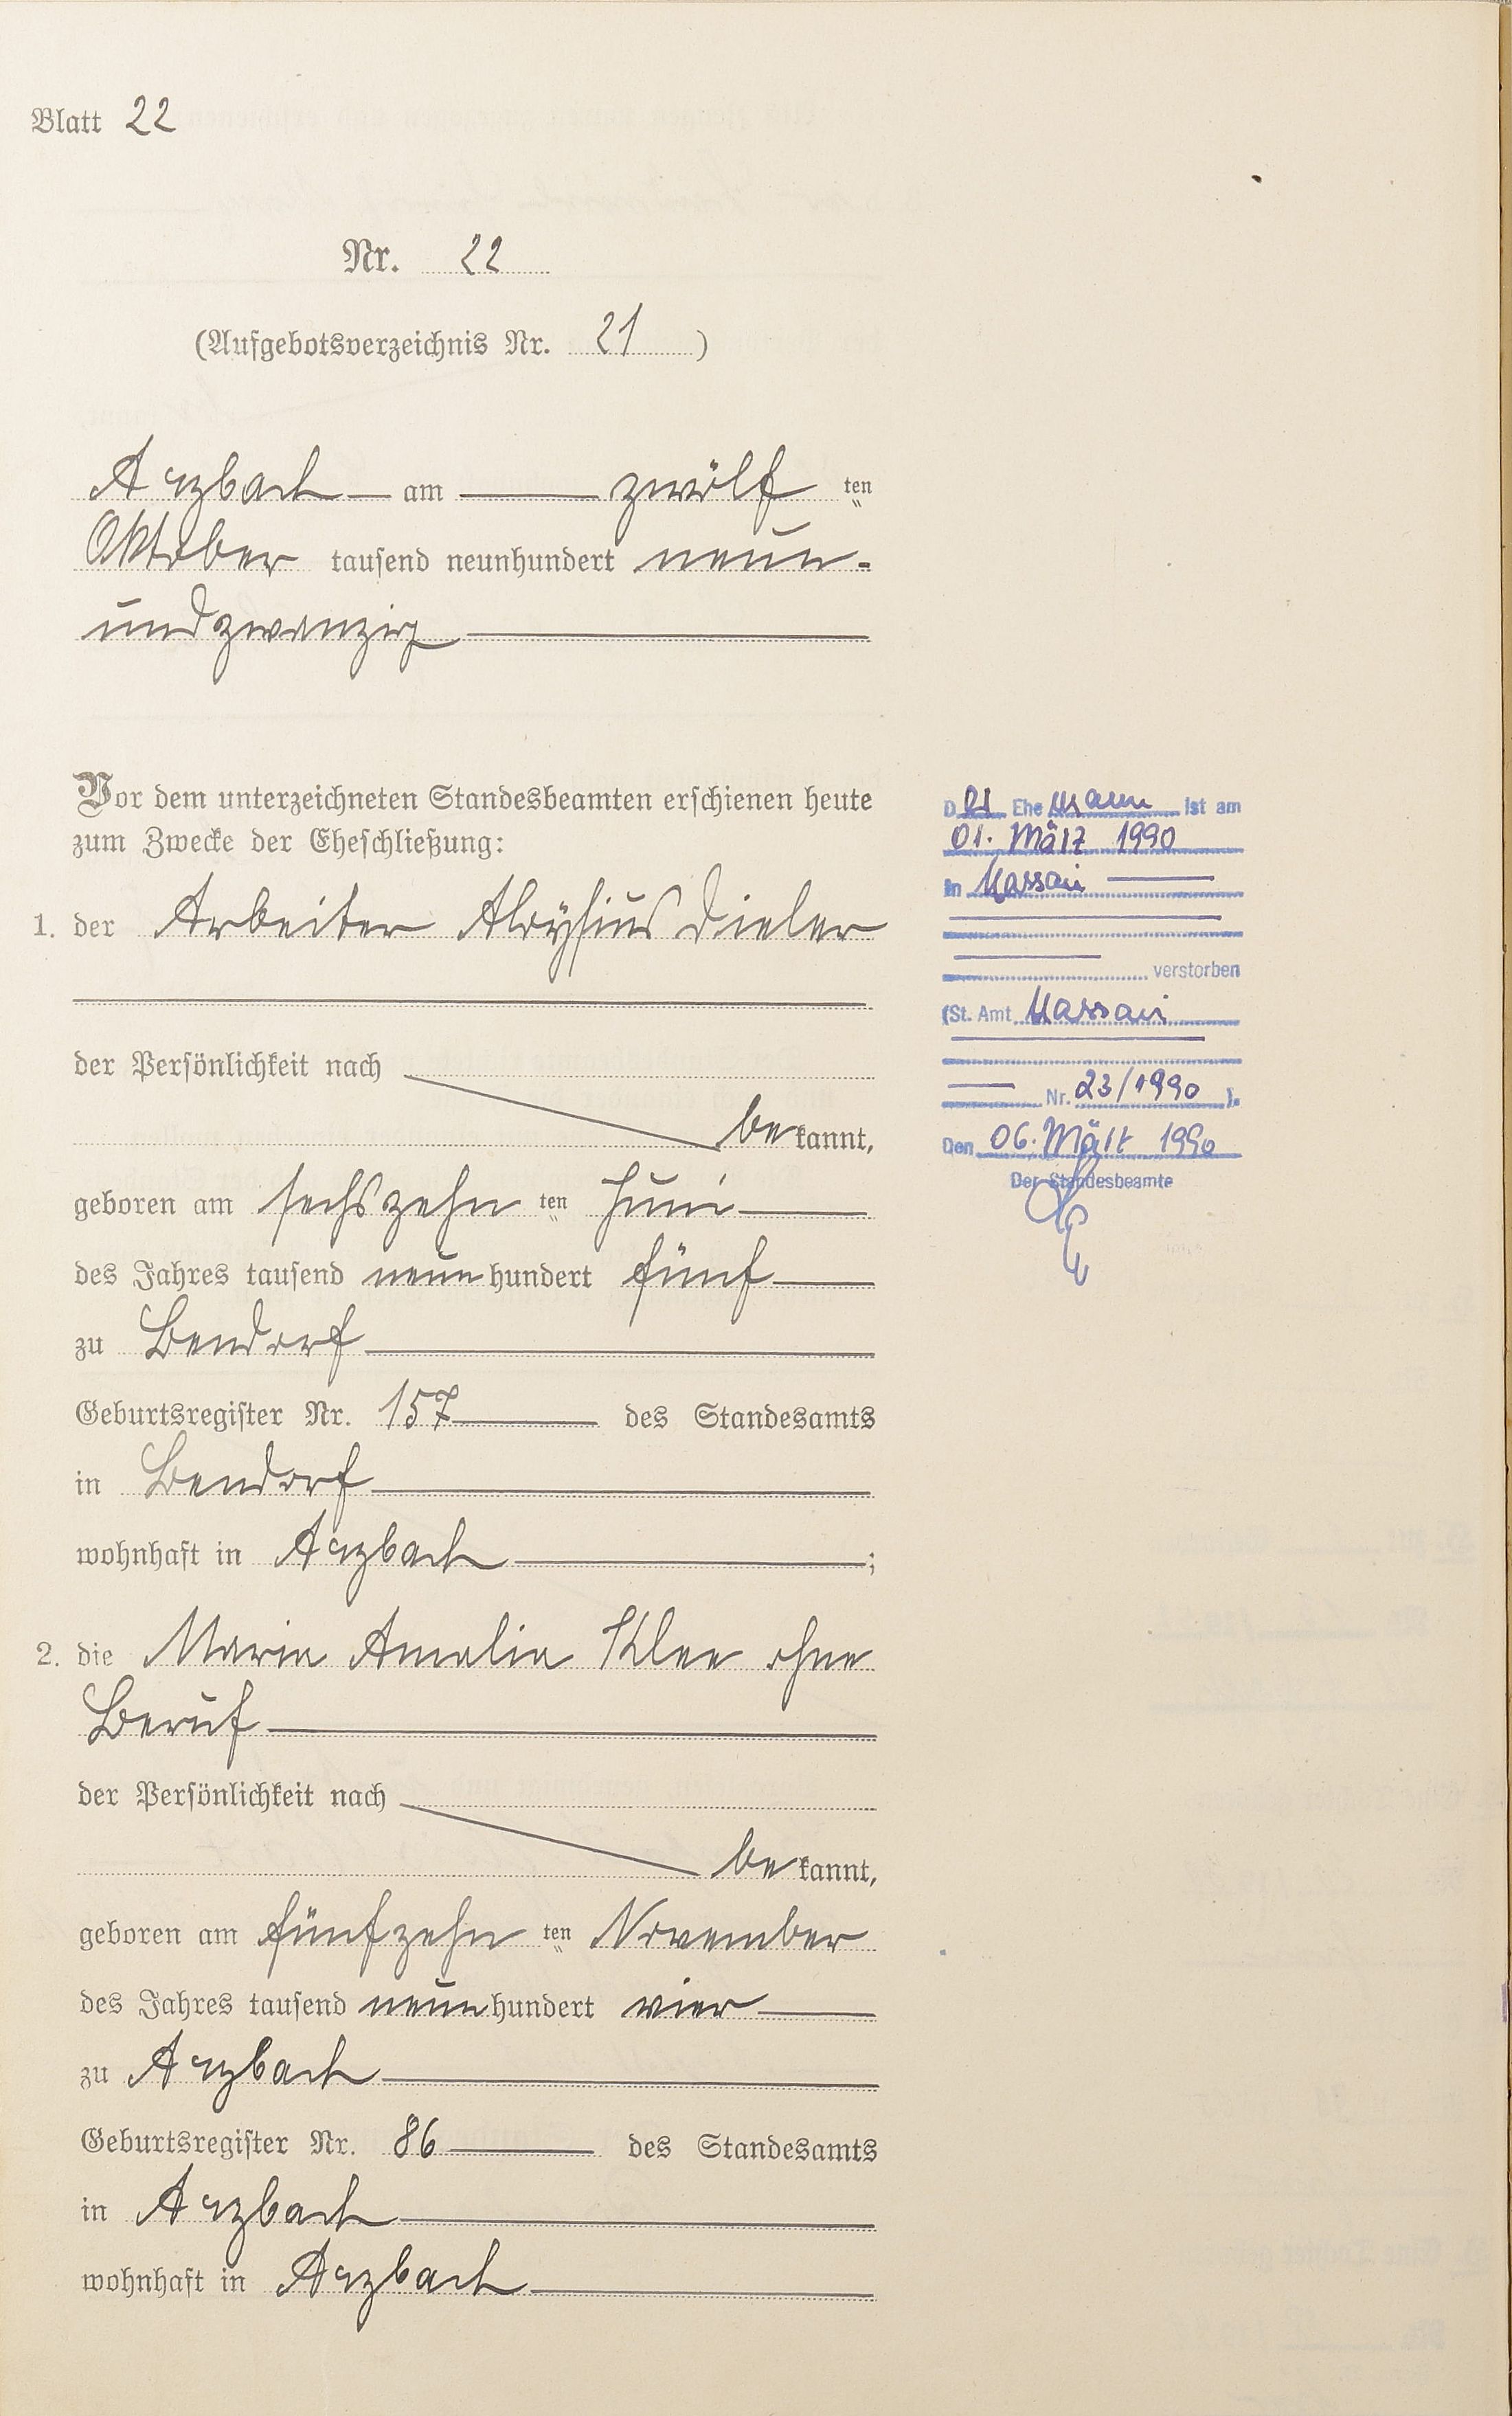 Blatt 22
Nr. 22
(Aufgebotsverzeichnis Nr. 21)
Arzbach am zwölf ten
Oktober tausend neunhundert neun-
undzwanzig
Vor dem unterzeichneten Standesbeamten erschienen heute
zum Zwecke der Eheschließung:
1. der Arbeiter Aloysius Dieler
der Persönlichkeit nach
be kannt,
geboren am sechszehn ten Juni
des Jahres tausend neun hundert fünf
zu Bendorf
Geburtsregister Nr. 157 des Standesamts
in Bendorf
wohnhaft in Arzbach;
2. die Maria Amalia Klee ohne
Beruf
der Persönlichkeit nach
be kannt,
geboren am fünfzehn ten November
des Jahres tausend neun hundert vier
zu Arzbach
Geburtsregister Nr. 86 des Standesamts
in Arzbach
wohnhaft in Arzbach
Der Ehemann ist am
01. März 1990
in Nassau
verstorben
(St. Amt Nassau
Nr. 23/1990).
Den 06. März 1990
Der Standesbeamte